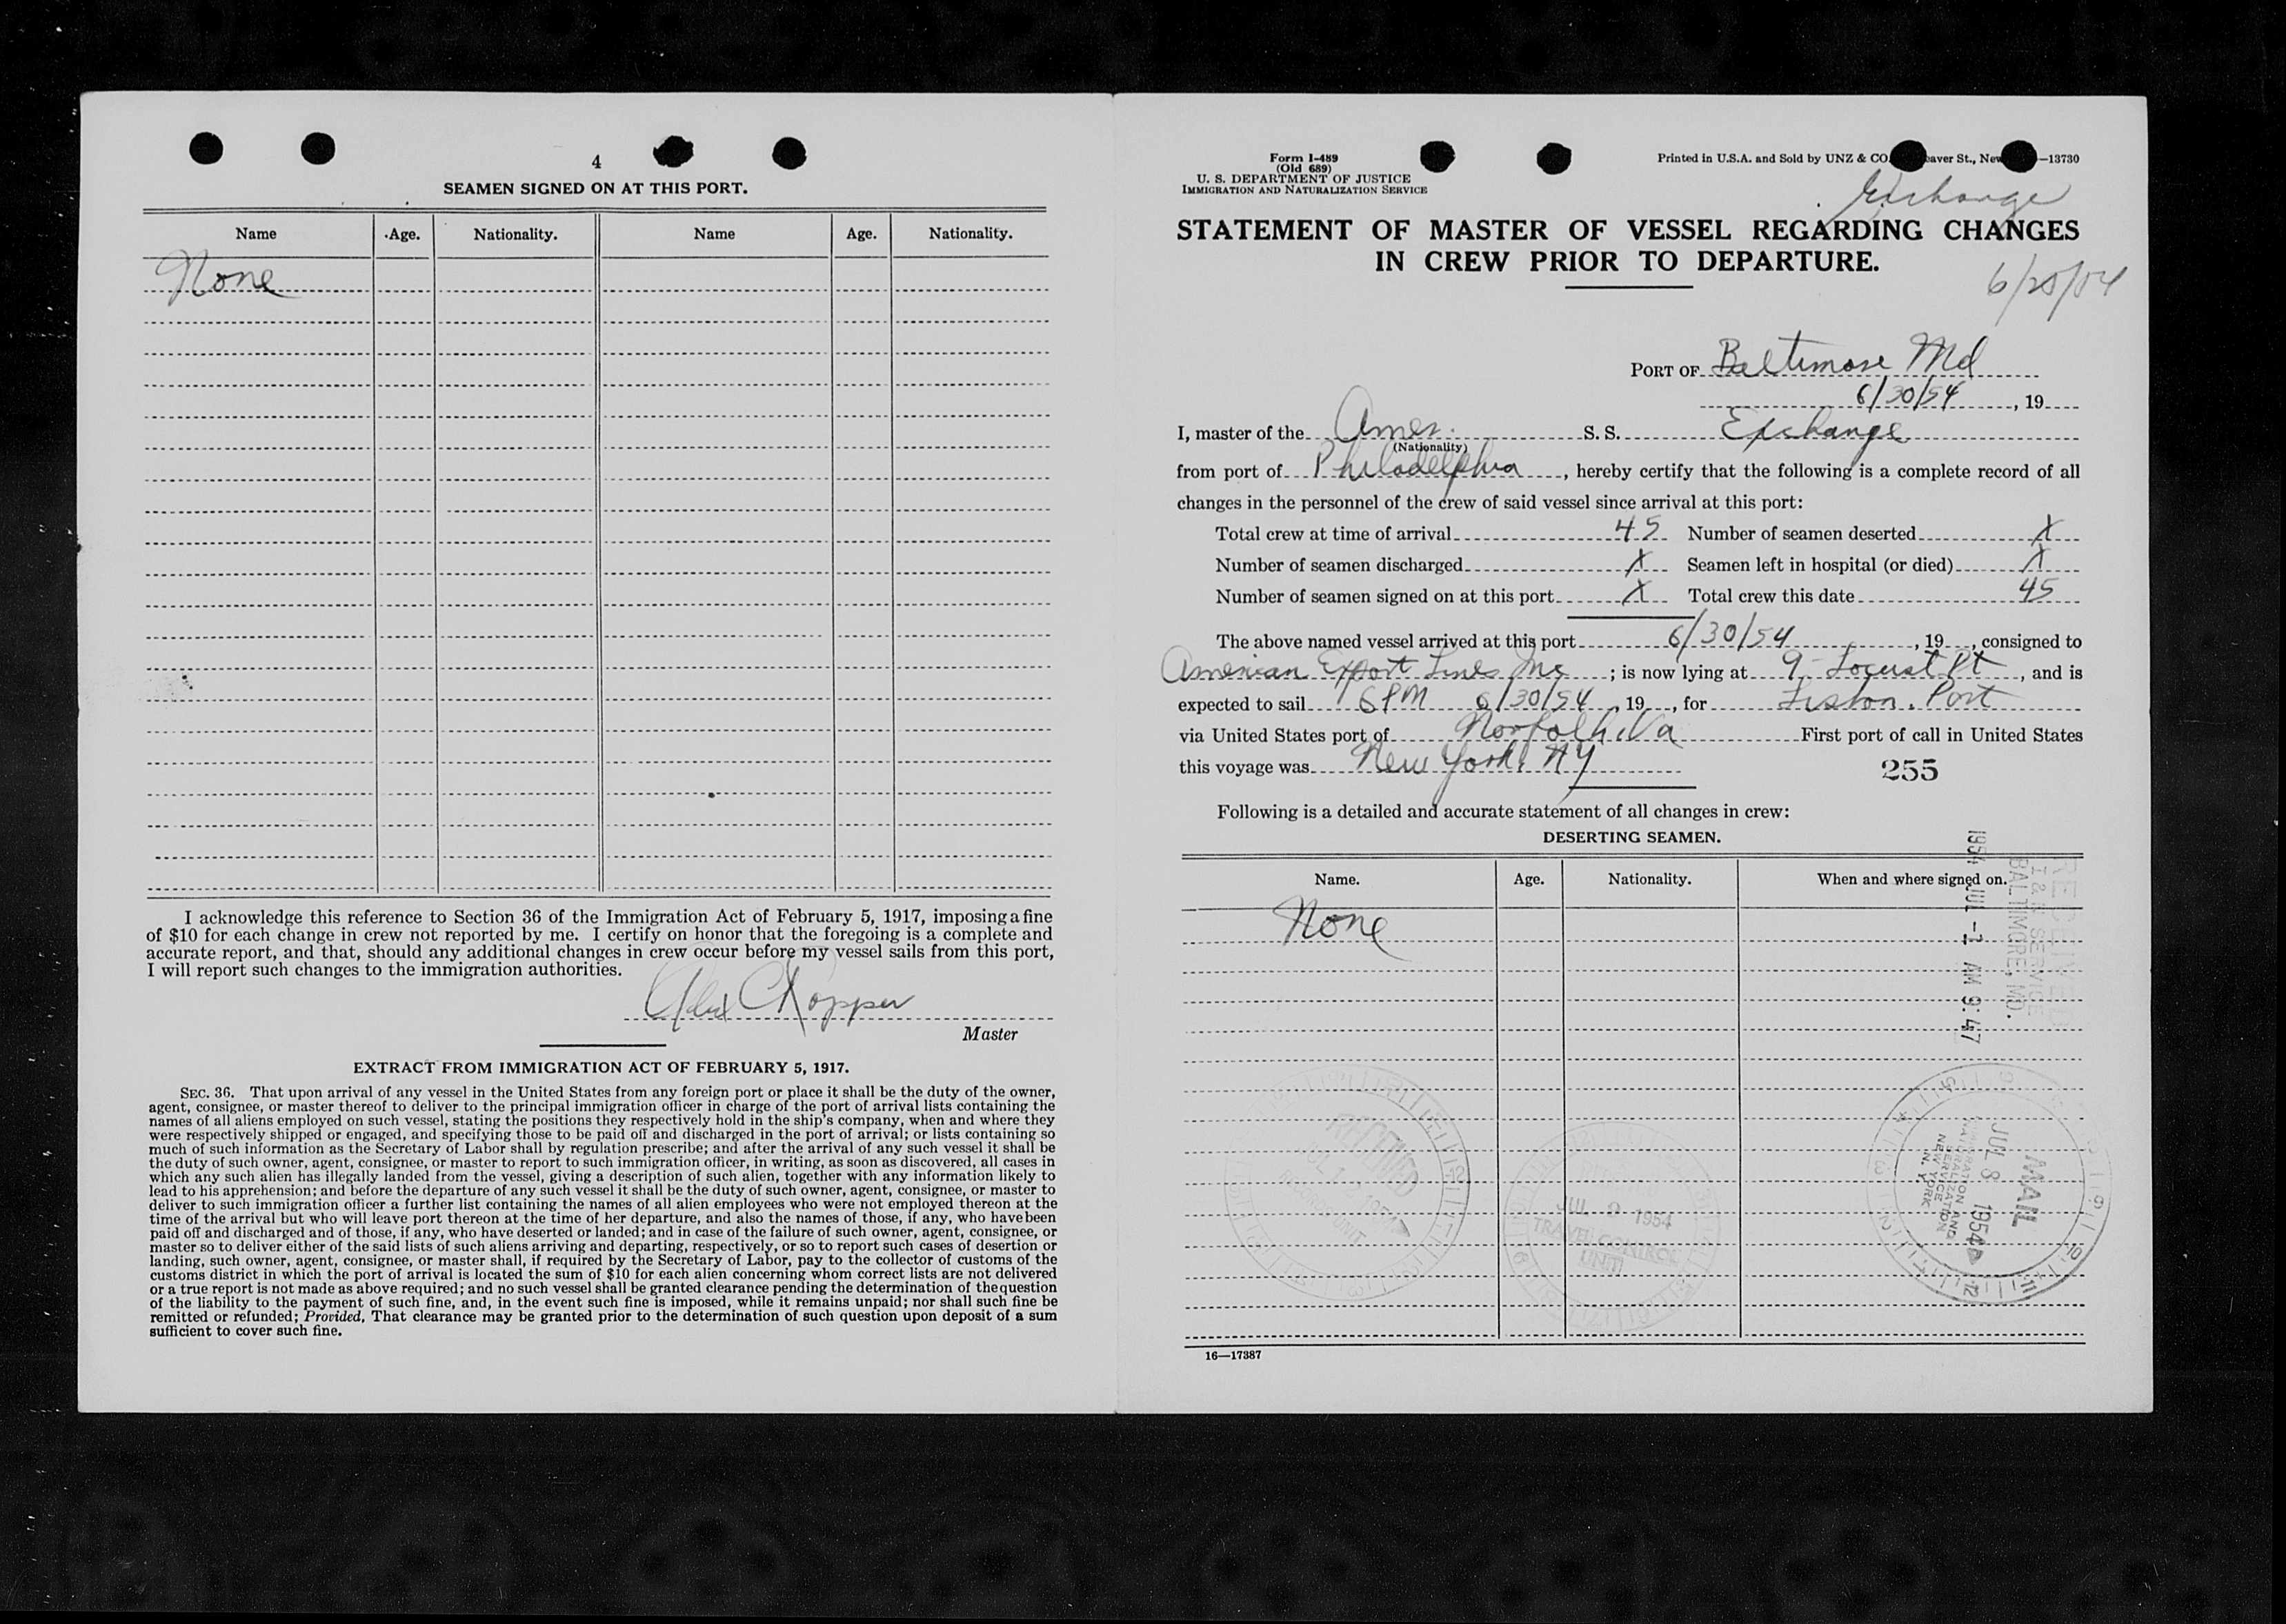 4
SEAMEN SIGNED ON AT THIS PORT.
Name Age. Nationality. Name Age. Nationality.
None
I acknowledge this reference to Section 36 of the Immigration Act of February 5, 1917, imposing a fine
of $10 for each change in crew not reported by me. I certify on honor that the foregoing is a complete and
accurate report, and that, should any additional changes in crew occur before my vessel sails from this port,
I will report such changes to the immigration authorities.
Master
EXTRACT FROM IMMIGRATION ACT OF FEBRUARY 5, 1917.
SEC. 36. That upon arrival of any vessel in the United States from any foreign port or place it shall be the duty of the owner,
agent, consignee, or master thereof to deliver to the principal immigration officer in charge of the port of arrival lists containing the
names of all aliens employed on such vessel, stating the positions they respectively hold in the ship's company, when and where they
were respectively shipped or engaged, and specifying those to be paid off and discharged in the port of arrival; or lists containing so
much of such information as the Secretary of Labor shall by regulation prescribe; and after the arrival of any such vessel it shall be
the duty of such owner, agent, consignee, or master to report to such immigration officer, in writing, as soon as discovered, all cases in
which any such alien has illegally landed from the vessel, giving a description of such alien, together with any information likely to
lead to his apprehension; and before the departure of any such vessel it shall be the duty of such owner, agent, consignee, or master to
deliver to such immigration officer a further list containing the names of all alien employees who were not employed thereon at the
time of the arrival but who will leave port thereon at the time of her departure, and also the names of those, if any, who have been
paid off and discharged and of those, if any, who have deserted or landed; and in case of the failure of such owner, agent, consignee, or
master so to deliver either of the said lists of such aliens arriving and departing, respectively, or so to report such cases of desertion or
landing, such owner, agent, consignee, or master shall, if required by the Secretary of Labor, pay to the collector of customs of the
customs district in which the port of arrival is located the sum of $10 for each alien concerning whom correct lists are not delivered
or a true report is not made as above required; and no such vessel shall be granted clearance pending the determination of the question
of the liability to the payment of such fine, and, in the event such fine is imposed, while it remains unpaid; nor shall such fine be
remitted or refunded; Provided, That clearance may be granted prior to the determination of such question upon deposit of a sum
sufficient to cover such fine.
Form I-489
(Old 689)
U. S. DEPARTMENT OF JUSTICE
IMMIGRATION AND NATURALIZATION SERVICE
Printed in U.S.A. and Sold by UNZ & CO. St., New —13730
Exchange
STATEMENT OF MASTER OF VESSEL REGARDING CHANGES
IN CREW PRIOR TO DEPARTURE.
PORT OF Baltimore Md
6/30/54, 19
I, master of the Amer. S. S. Exchange
(Nationality)
from port of Philadelphia, hereby certify that the following is a complete record of all
changes in the personnel of the crew of said vessel since arrival at this port:
Total crew at time of arrival 45 Number of seamen deserted X
Number of seamen discharged X Seamen left in hospital (or died) X
Number of seamen signed on at this port X Total crew this date 45
The above named vessel arrived at this port 6/30/54, 19, consigned to
American Export Lines Inc; is now lying at 9 Locust Pt, and is
expected to sail 6 PM 6/30/54, 19, for Lisbon. Port
via United States port of Norfolk, Va First port of call in United States
this voyage was New York, NY
255
Following is a detailed and accurate statement of all changes in crew:
DESERTING SEAMEN.
Name. Age. Nationality. When and where signed on.
None
RECEIVED
I & N SERVICE
BALTIMORE, MD.
1954 JUL -1 AM 9:47
RECEIVED
RECORD UNIT
JUL 9 1954
TRAVEL CONTROL
UNIT
MAIL
JUL 8 1954
IMMIGRATION AND
NATURALIZATION
SERVICE
NEW YORK
N. Y.
16—17387